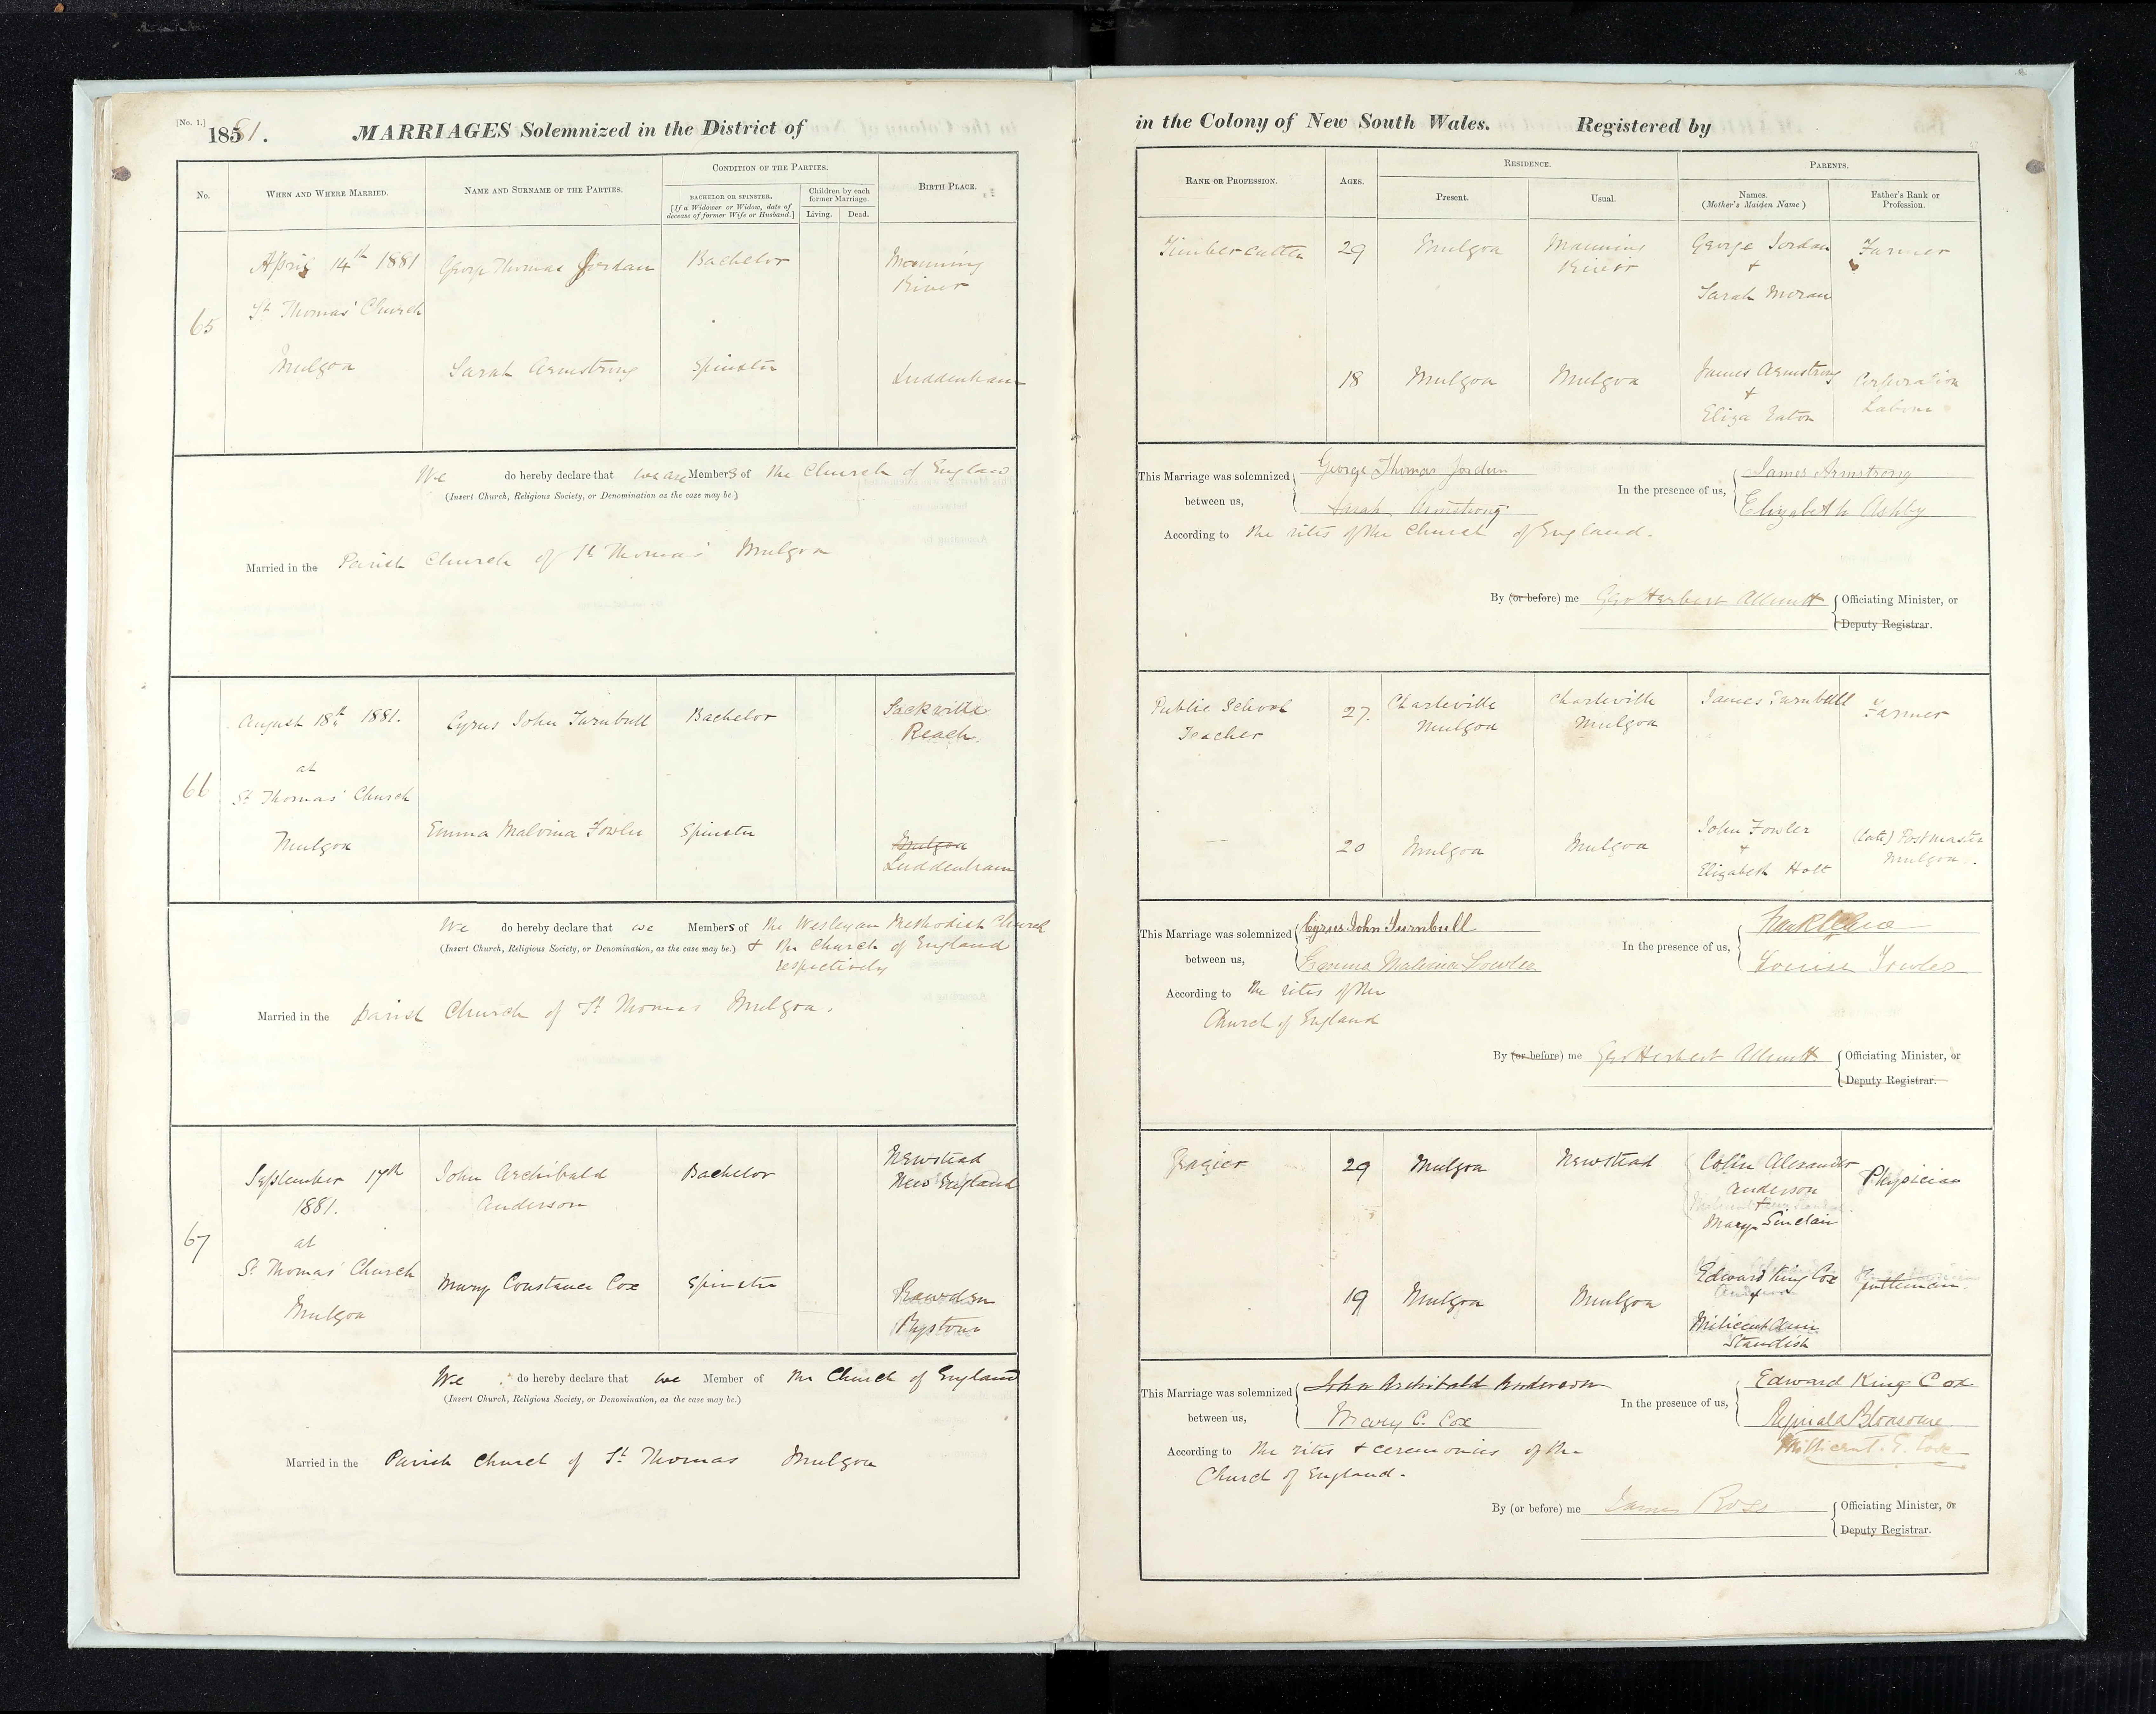 [No. 1.]
1881.
MARRIAGES Solemnized in the District of
No.
WHEN AND WHERE MARRIED.
NAME AND SURNAME OF THE PARTIES.
CONDITION OF THE PARTIES.
BACHELOR OR SPINSTER.
[If a Widower or Widow, date of
decease of former Wife or Husband.]
Children by each
former Marriage.
Living.
Dead.
BIRTH PLACE.
65
April 14th 1881
St Thomas' Church
Mulgoa
George Thomas Jordan
Bachelor
Manning
River
Sarah Armstrong
Spinster
Luddenham
We do hereby declare that we are Members of the Church of England
(Insert Church, Religious Society, or Denomination as the case may be)
Married in the Parish Church of St Thomas' Mulgoa
66
August 18th 1881.
at
St Thomas' Church
Mulgoa
Cyrus John Turnbull
Bachelor
Sackville
Reach
Emma Malvina Fowler
Spinster
Mulgoa
Luddenham
We do hereby declare that we Members of the Wesleyan Methodist Church
(Insert Church, Religious Society, or Denomination, as the case may be.) & the Church of England
respectively
Married in the parish Church of St Thomas Mulgoa.
67
September 17th
1881.
at
St Thomas' Church
Mulgoa
John Archibald
Anderson
Bachelor
Newstead
New England
Mary Constance Cox
Spinster
Rawdon
We do hereby declare that we Member of the Church of England
(Insert Church, Religious Society, or Denomination, as the case may be.)
Married in the Parish Church of St Thomas Mulgoa
in the Colony of New South Wales.
Registered by
RANK OR PROFESSION.
AGES.
RESIDENCE.
Present.
Usual.
PARENTS.
Names.
(Mother's Maiden Name)
Father's Rank or
Profession.
Timber cutter
29
Mulgoa
Manning
River
George Jordan
+
Sarah Moran
Farmer
18
Mulgoa
Mulgoa
James Armstrong
+
Eliza Eaton
Corporation
Labour
This Marriage was solemnized
between us,
George Thomas Jordan
Sarah Armstrong
In the presence of us,
James Armstrong
Elizabeth Ashby
According to the rites of the Church of England.
By (or before) me Geo Herbert Allnutt
Officiating Minister, or
Deputy Registrar.
Public School
Teacher
27.
Charleville
Mulgoa
Charleville
Mulgoa
James Turnbull
Farmer
20
Mulgoa
Mulgoa
John Fowler
+
Elizabeth Holt
(late) Postmaster
Mulgoa.
This Marriage was solemnized
between us,
Cyrus John Turnbull
Emma Malvina Fowler
In the presence of us,
Louise Fowler
According to the rites of the
Church of England
By (or before) me Geo Herbert Allnutt
Officiating Minister, or
Deputy Registrar.
Grazier
29
Mulgoa
Newstead
Colin Alexander
Anderson
+
Mary Sinclair
Physician
19
Mulgoa
Mulgoa
Edward King Cox
+
Millicent Ann
Standish
Gentleman.
This Marriage was solemnized
between us,
John Archibald Anderson
Mary C. Cox
In the presence of us,
Edward King Cox
Reginald
Millicent. E. Cox
According to the rites & ceremonies of the
Church of England.
By (or before) me James Ross
Officiating Minister, or
Deputy Registrar.